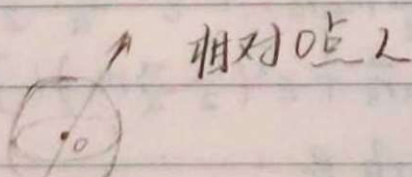 相对O点L
O